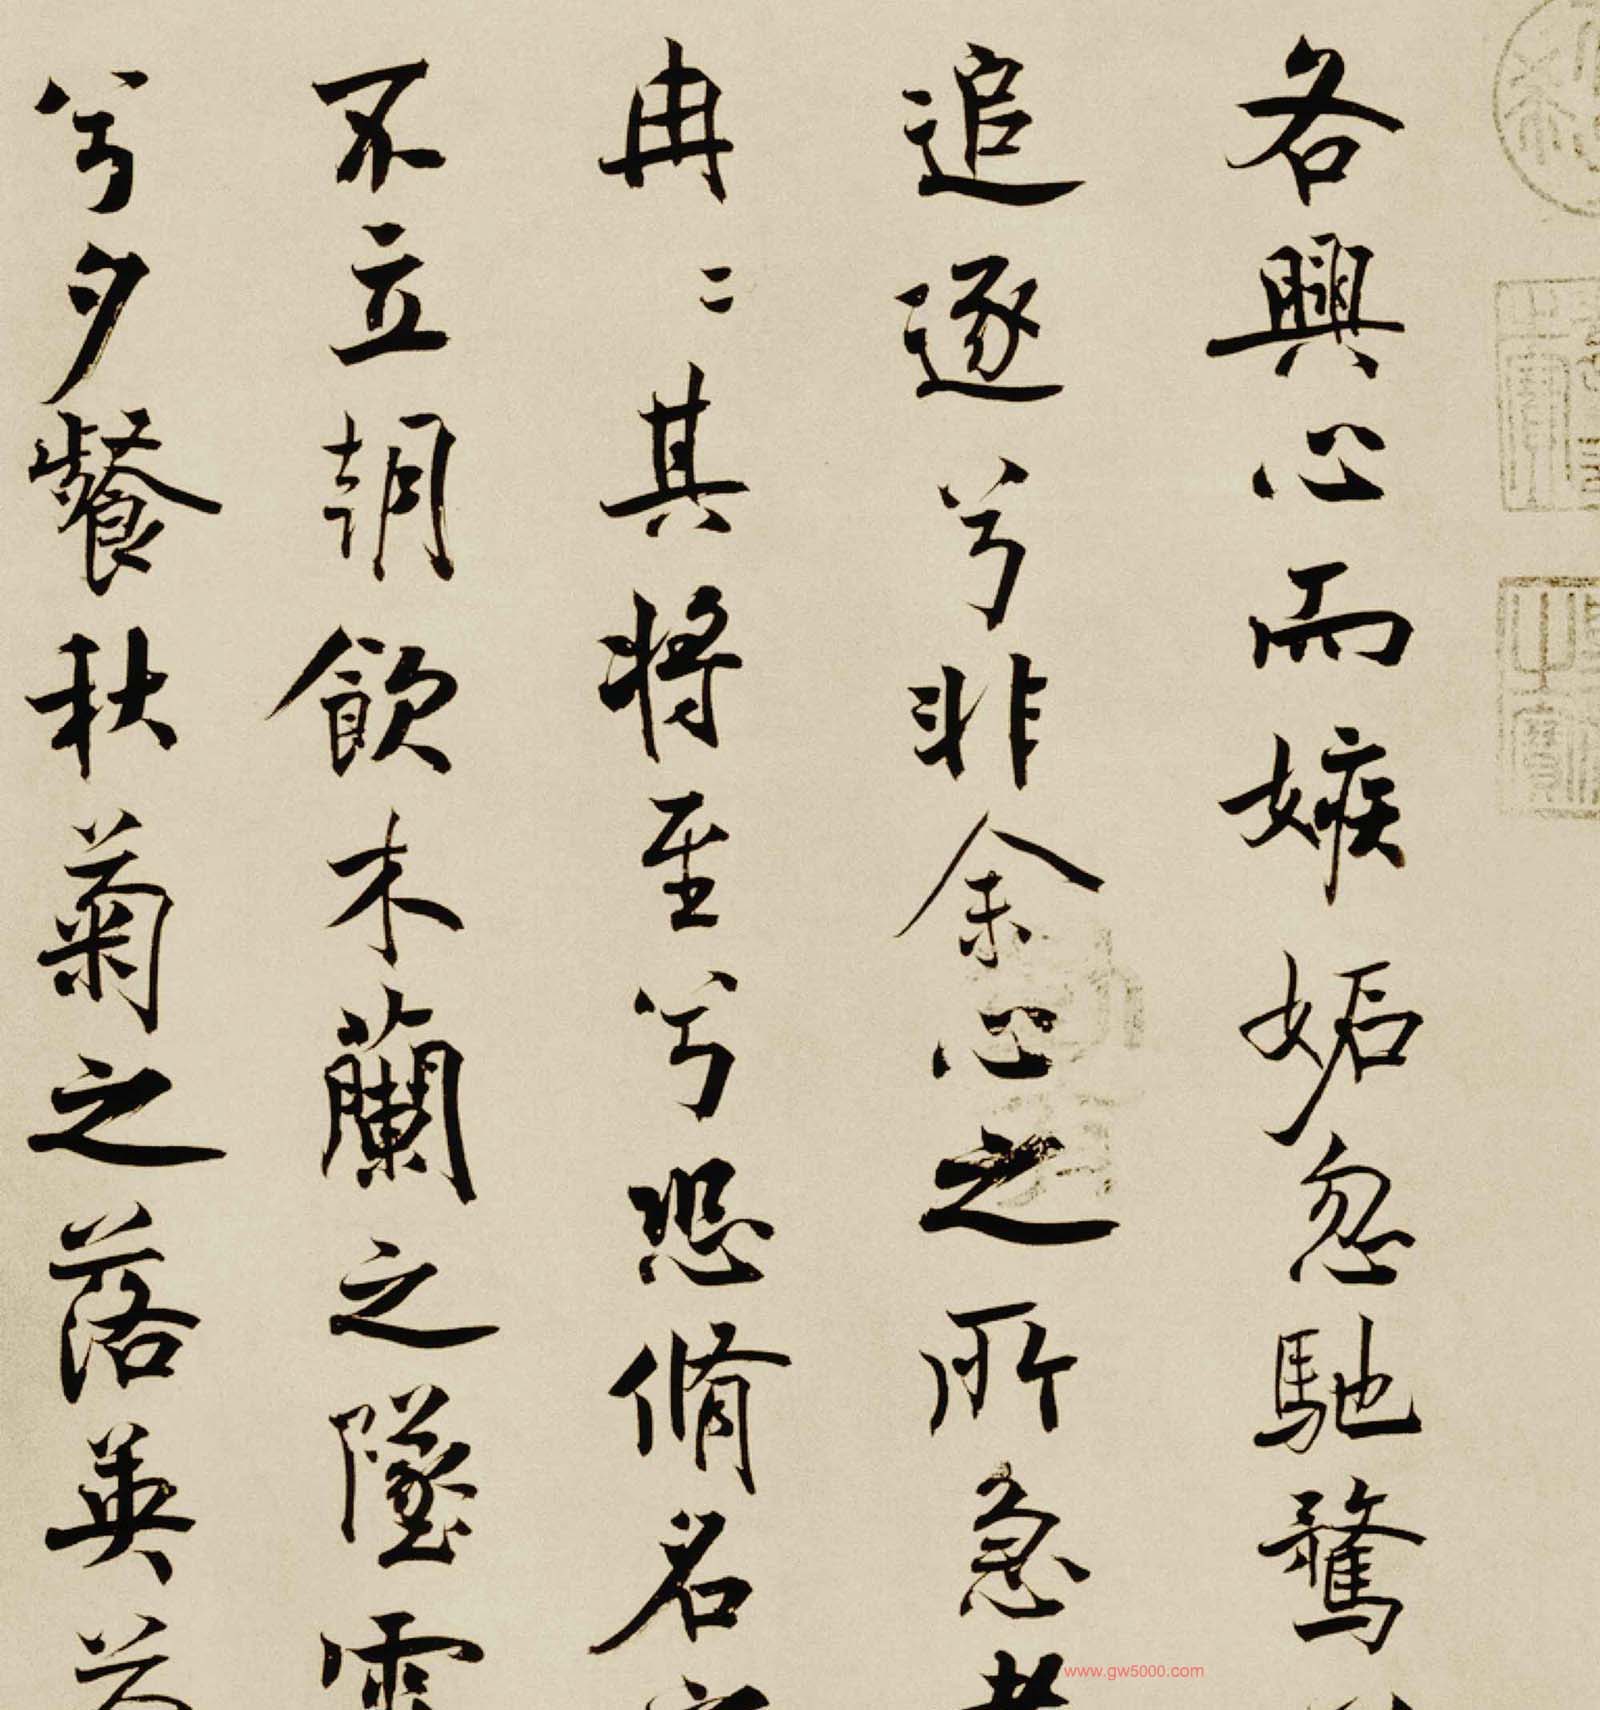 各興心而嫉妬忽馳騖
追逐兮非余心之所急老
冉〻其将至兮恐脩名
不立朝飲木蘭之墜露
兮夕餐秋菊之落英苟
www.gw5000.com